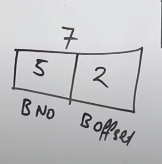 7
5 2
B NO B offset